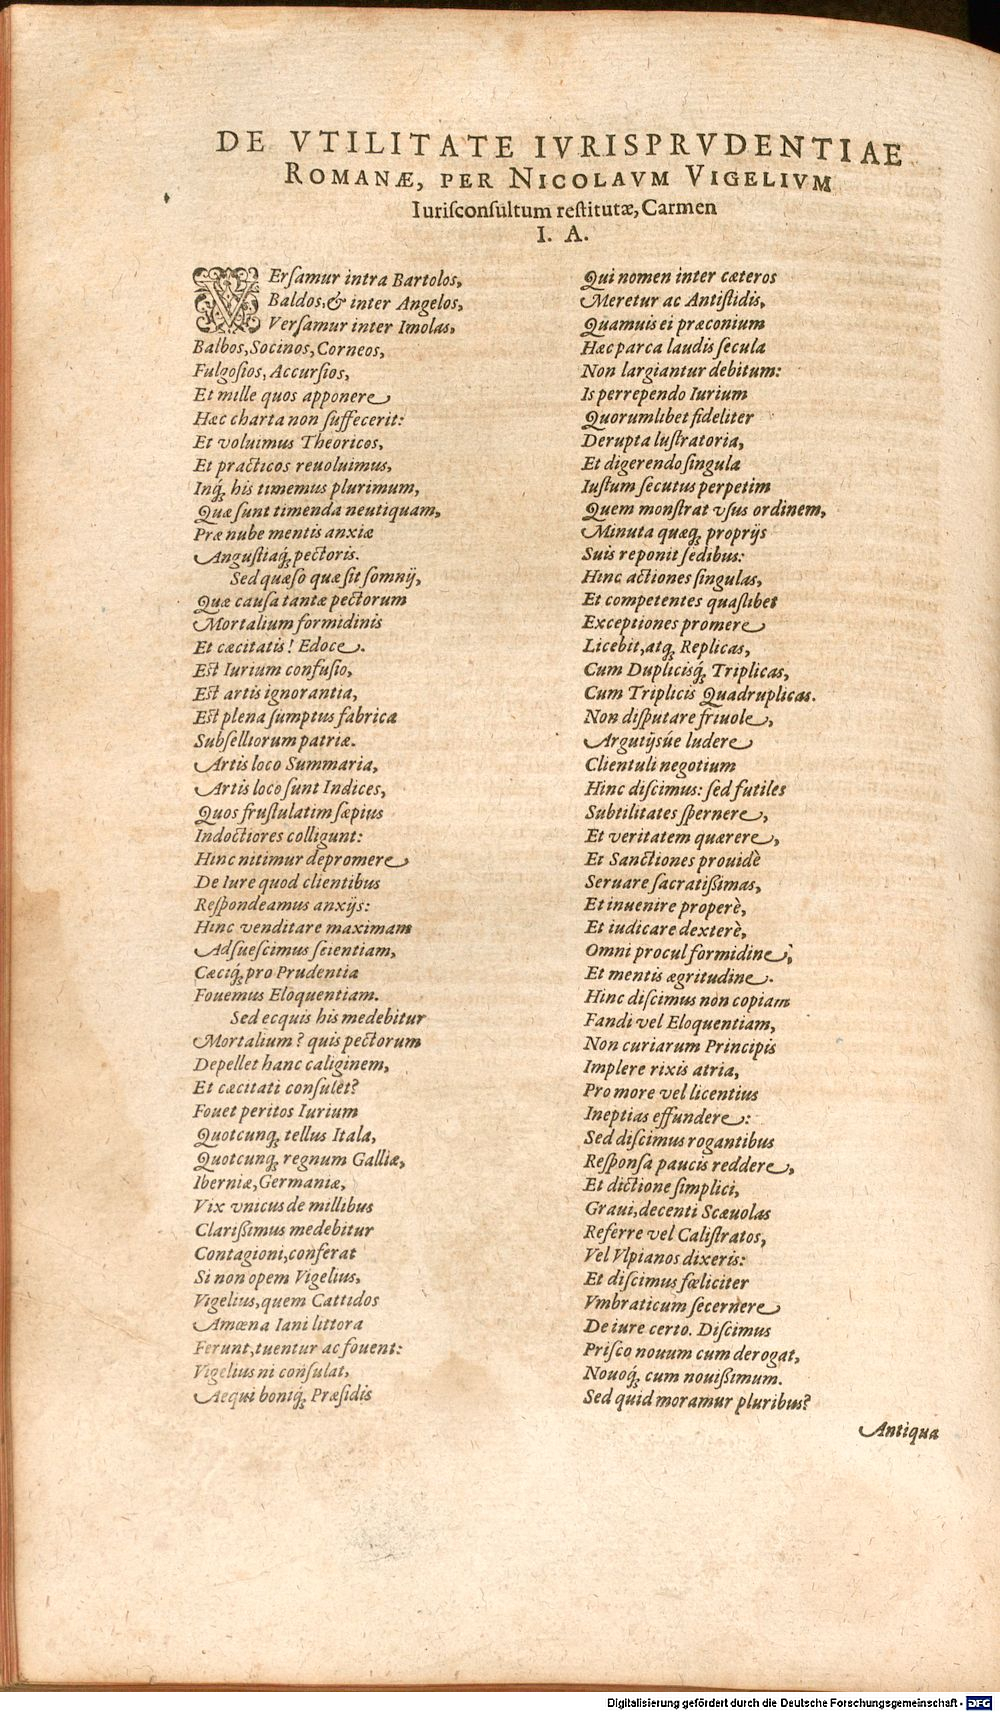 DE VTILITATE IVRISPRVDENTIAE
ROMANÆ, PER NICOLAVM VIGELIVM
Iurisconsultum restitutæ, Carmen
I. A.
VErsamur intra Bartolos,
Baldos, & inter Angelos,
Versamur inter Imolas,
Balbos, Socinos, Corneos,
Fulgosios, Accursios,
Et mille quos apponere
Hæc charta non suffecerit:
Et voluimus Theoricos,
Et practicos reuoluimus,
Inq́; his timemus plurimum,
Quæ sunt timenda neutiquam,
Præ nube mentis anxiæ
Angustiaq́; pectoris.
Sed quæso quæ sit somnij,
Quæ causa tantæ pectorum
Mortalium formidinis
Et cæcitatis! Edoce.
Est Iurium confusio,
Est artis ignorantia,
Est plena sumptus fabrica
Subselliorum patriæ.
Artis loco Summaria,
Artis loco sunt Indices,
Quos frustulatim sæpius
Indoctiores colligunt:
Hinc nitimur depromere
De Iure quod clientibus
Respondeamus anxijs:
Hinc venditare maximam
Adsuescimus scientiam,
Cæciq́; pro Prudentia
Fouemus Eloquentiam.
Sed ecquis his medebitur
Mortalium? quis pectorum
Depellet hanc caliginem,
Et cæcitati consulet?
Fouet peritos Iurium
Quotcunq; tellus Itala,
Quotcunq; regnum Galliæ,
Iberniæ, Germaniæ,
Vix vnicus de millibus
Clarißimus medebitur
Contagioni, conferat
Si non opem Vigelius,
Vigelius, quem Cattidos
Amœna Iani littora
Ferunt, tuentur ac fouent:
Vigelius ni consulat,
Aequi boniq́; Præsidis
Qui nomen inter cæteros
Meretur ac Antistidis,
Quamuis ei præconium
Hæc parca laudis secula
Non largiantur debitum:
Is perrependo Iurium
Quorumlibet fideliter
Derupta lustratoria,
Et digerendo singula
Iustum secutus perpetim
Quem monstrat vsus ordinem,
Minuta quæq; proprijs
Suis reponit sedibus:
Hinc actiones singulas,
Et competentes quaslibet
Exceptiones promere
Licebit, atq; Replicas,
Cum Duplicisq́; Triplicas,
Cum Triplicis Quadruplicas.
Non disputare friuole,
Argutijsúe ludere
Clientuli negotium
Hinc discimus: sed futiles
Subtilitates spernere,
Et veritatem quærere,
Et Sanctiones prouidè
Seruare sacratißimas,
Et inuenire properè,
Et iudicare dexterè,
Omni procul formidine,
Et mentis ægritudine.
Hinc discimus non copiam
Fandi vel Eloquentiam,
Non curiarum Principis
Implere rixis atria,
Pro more vel licentius
Ineptias effundere:
Sed discimus rogantibus
Responsa paucis reddere,
Et dictione simplici,
Graui, decenti Scæuolas
Referre vel Calistratos,
Vel Vlpianos dixeris:
Et discimus fœliciter
Vmbraticum secernere
De iure certo. Discimus
Prisco nouum cum derogat,
Nouoq́; cum nouißimum.
Sed quid moramur pluribus?
Antiqua
Digitalisierung gefördert durch die Deutsche Forschungsgemeinschaft - DFG